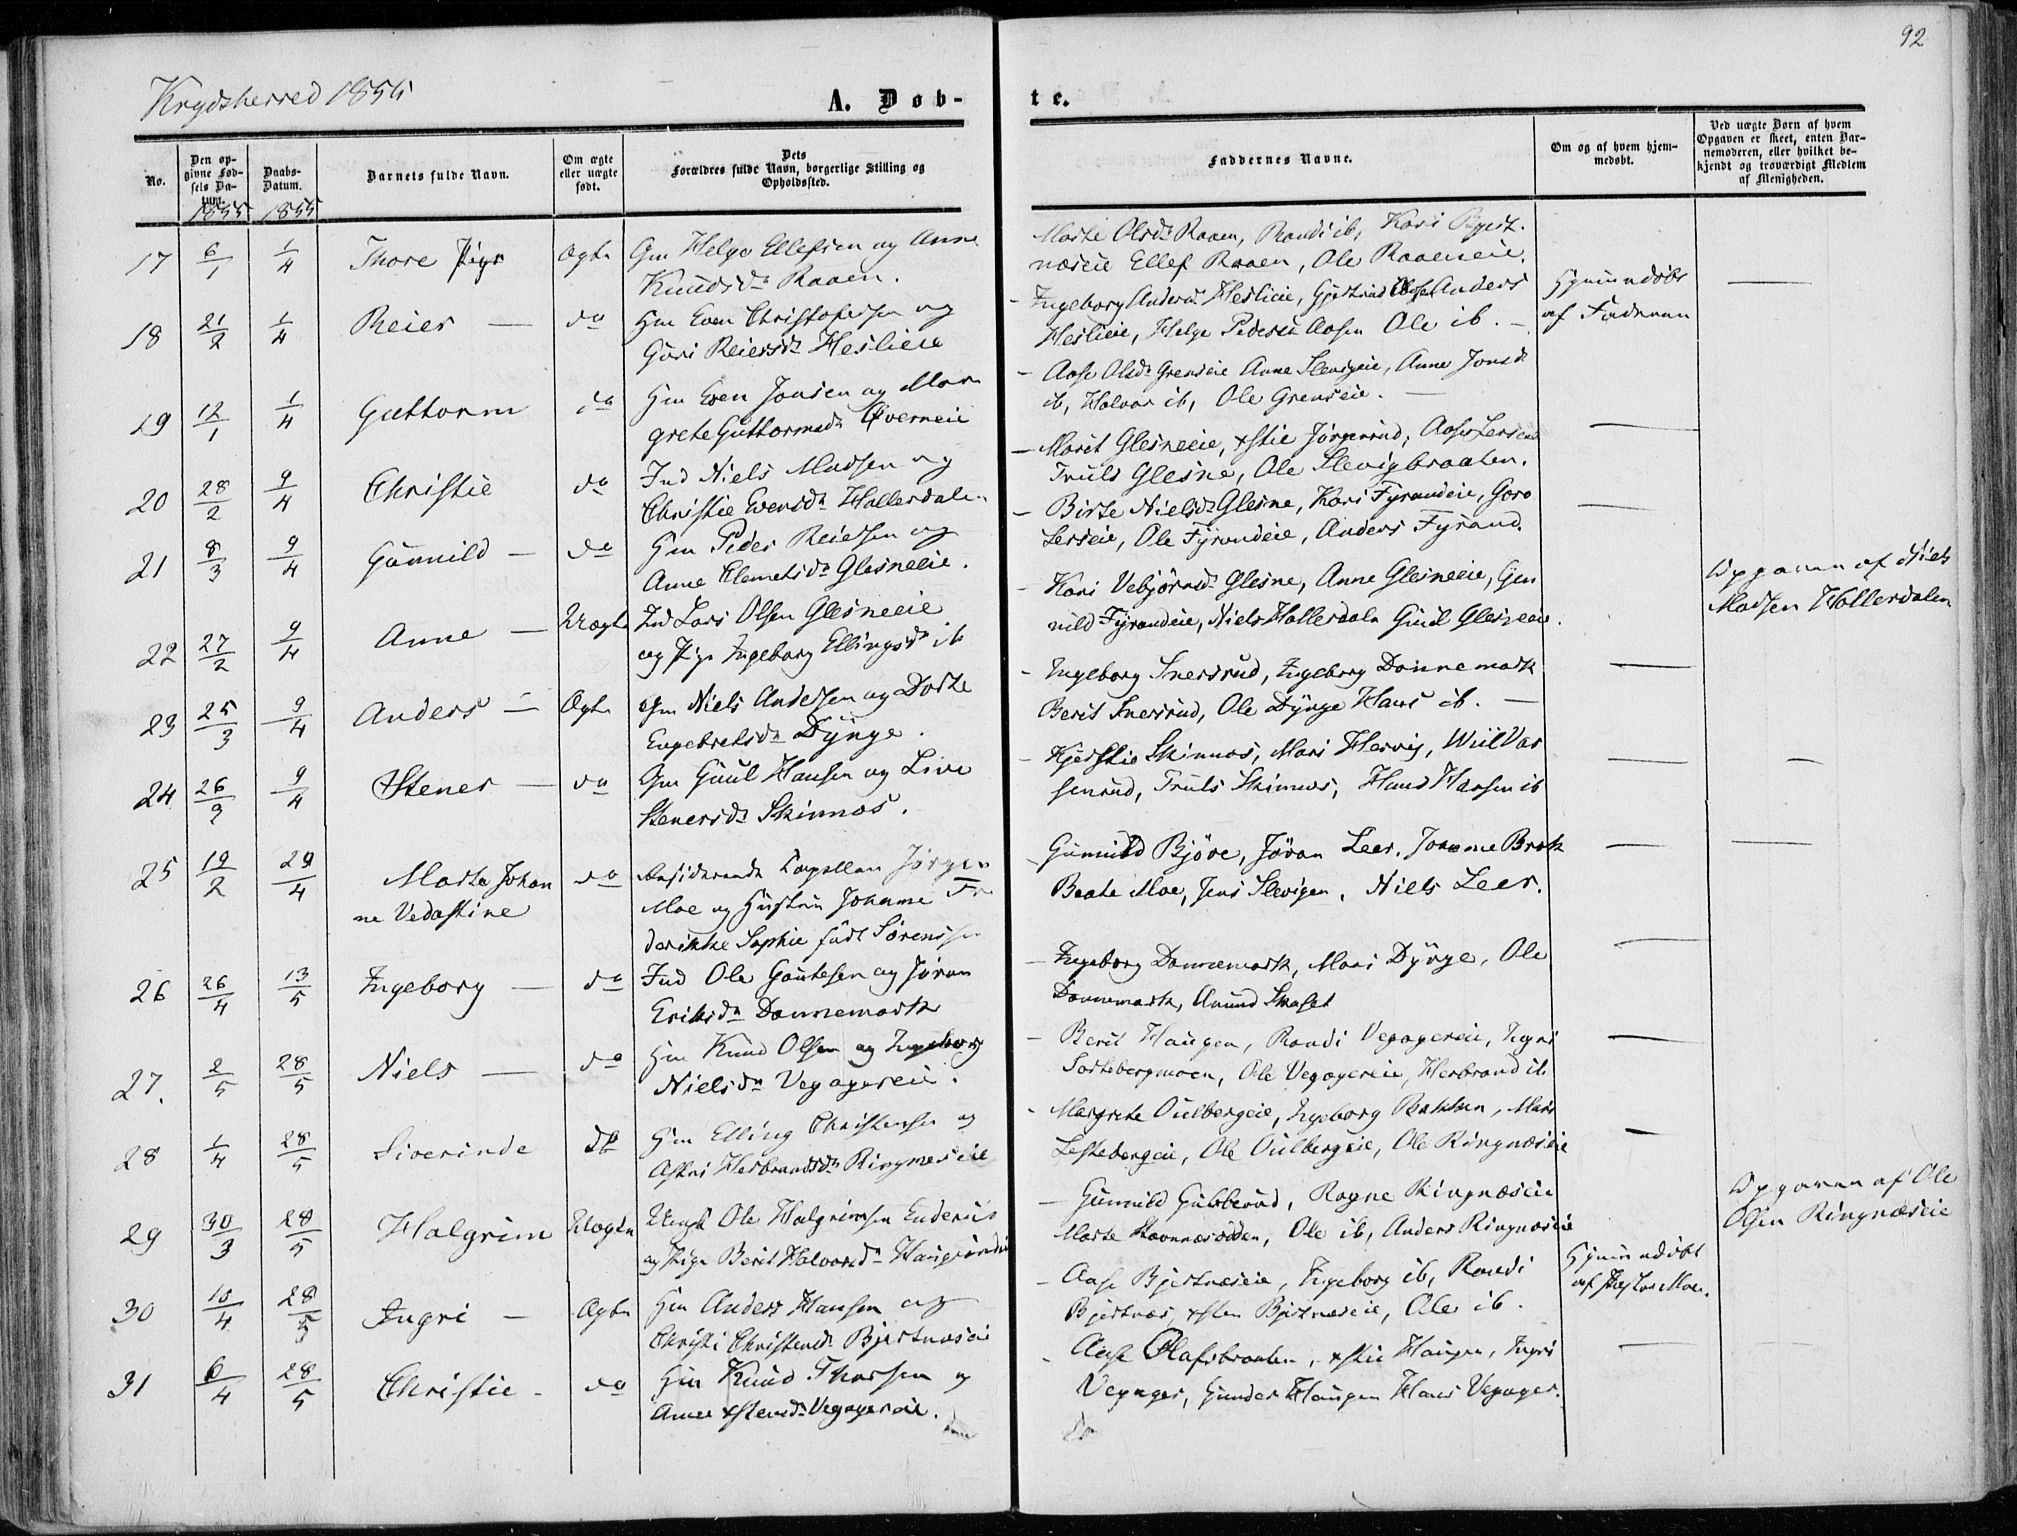 92
Krydsherred 1855
A. Døb-
te.
No.
Den op-
givne Fød-
sels Da-
tum.
Daabs-
Datum.
Barnets fulde Navn.
Om ægte
eller uægte
født.
Dets
Forældres fulde Navn, borgerlige Stilling og
Opholdssted.
Faddernes Navne.
Om og af hvem hjem-
medøbt.
Ved uægte Børn af hvem
Opgaven er skeet, enten Bar-
nemoderen, eller hvilket be-
kjendt og troværdigt Medlem
af Menigheden.
1855 1855
17 6/1 1/4 Thore Ægte Gm Helge Ellefsen og Anne
Knudsd. Raaen.
Marte Olsd. Raaen, Randi ib, Kari Bjert-
næseie Ellef Raaen, Ole Raaeneie.
18 21/2 1/4 Reier — do Hm Even Christofersen og
Guri Reiersd. Heslieie
Ingeborg Andersd. Heslieie, Gjertrud Anders
Heslieie, Helge Pedersen Aasen Ole ib. —
Hjemmedøbt
af Faderen
19 12/1 1/4 Guttorm do Hm Even Jonsen og Mar
grete Guttormsd. Qverneie
— Aase Olsd. Grenseie Anne Slevigeie, Anne Jonsd
ib, Halvor ib, Ole Grenseie. —
20 28/2 9/4 Christie do Ind Niels Madsen og
Christie Evensd. Hallerdalen
— Marit Glesneeie, Xstie Jørgenrud, Aase
Truls Glesne, Ole Slevigbraaten.
21 8/3 9/4 Gunnild — do Hm Peder Reiersen og
Anne Clemetsd. Glesneeie.
— Birte Nielsd. Glesne, Kari Fyrandeie, Goro
Lerseie, Ole Fyrandeie, Anders Fyrand.
22 27/2 9/4 Anne — Uægte Ind Lars Olsen Glesneeie
og Pige Ingeborg Ellingsd. ib
— Kari Vebjørnsd. Glesne, Anne Glesneeie, Gun
nild Fyrandeie, Niels Hallerdalen Guul Glesneeie.
Opgaven af Niels
Madsen Hallerdalen
23 25/3 9/4 Anders — Ægte Gm Niels Andersen og Dorte
Engebretsd. Dynge.
— Ingeborg Snersrud, Ingeborg Dannemark
Berit Snersrud, Ole Dynge Hans ib. —
24 26/3 9/4 Stener — do Gm Guul Hansen og Live
Stenersd. Skinnes.
— Kjerstie Skinnes, Mari Hervig,
senrud, Truls Skinnes, Hansen ib
25 19/2 29/4 Marte Johan
ne Vedastine
do Residerende Capellan Jørgen
Moe og Hustru Johanne Fre
derikke Sophie født Sørenssen
— Gunnild Bjøre, Jøran Leer,
Beate Moe, Jens Slevigen, Niels Leer.
26 26/4 13/5 Ingeborg — do Ind Ole Gautesen og Jøran
Eriksd. Dannemark
— Ingeborg Dannemark, Mari Dynge, Ole
Dannemark, Amund
27. 2/5 28/5 Niels — do Hm Knud Olsen og Ingeborg
Nielsd. Vegagereie.
— Berit Haugen, Randi Vegagereie, Ingri
Sortebergmoen, Ole Vegagereie, Herbrand ib
28 1/4 28/5 Siverinde do Hm Elling Christensen og
Astri Herbrandsd. Ringneseie
— Margrete Oulbergeie, Ingeborg Bakken, Mari
Leftebergeie, Ole Oulbergeie, Ole Ringnæseie
29 30/3 28/5 Halgrim Uægte Ungk Ole Halgrimsen Enderud
og Pige Berit Halvorsd.
— Gunnild Gubberud, Ragne Ringnæseie
Marte Ravnnæsodden, Ole ib, Anders Ringnæseie
Opgaven af Ole
Olsen Ringnæseie
30 10/4 28/5 Ingri — Ægte Hm Anders Hansen og
Christi Christensd. Bjertnæseie
— Aase Bjertnæseie, Ingeborg ib, Randi
Bjertnæs, Bjertnæseie, Ole ib.
Hjemmedøbt
af Moe.
31 6/4 28/5 Christie — do Hm Knud Thorsen og
Anne Vegagereie.
— Aase Olafsbraaten, Xstie Haugen, Ingri
Vegager, Gunder Haugen Hans Vegager.